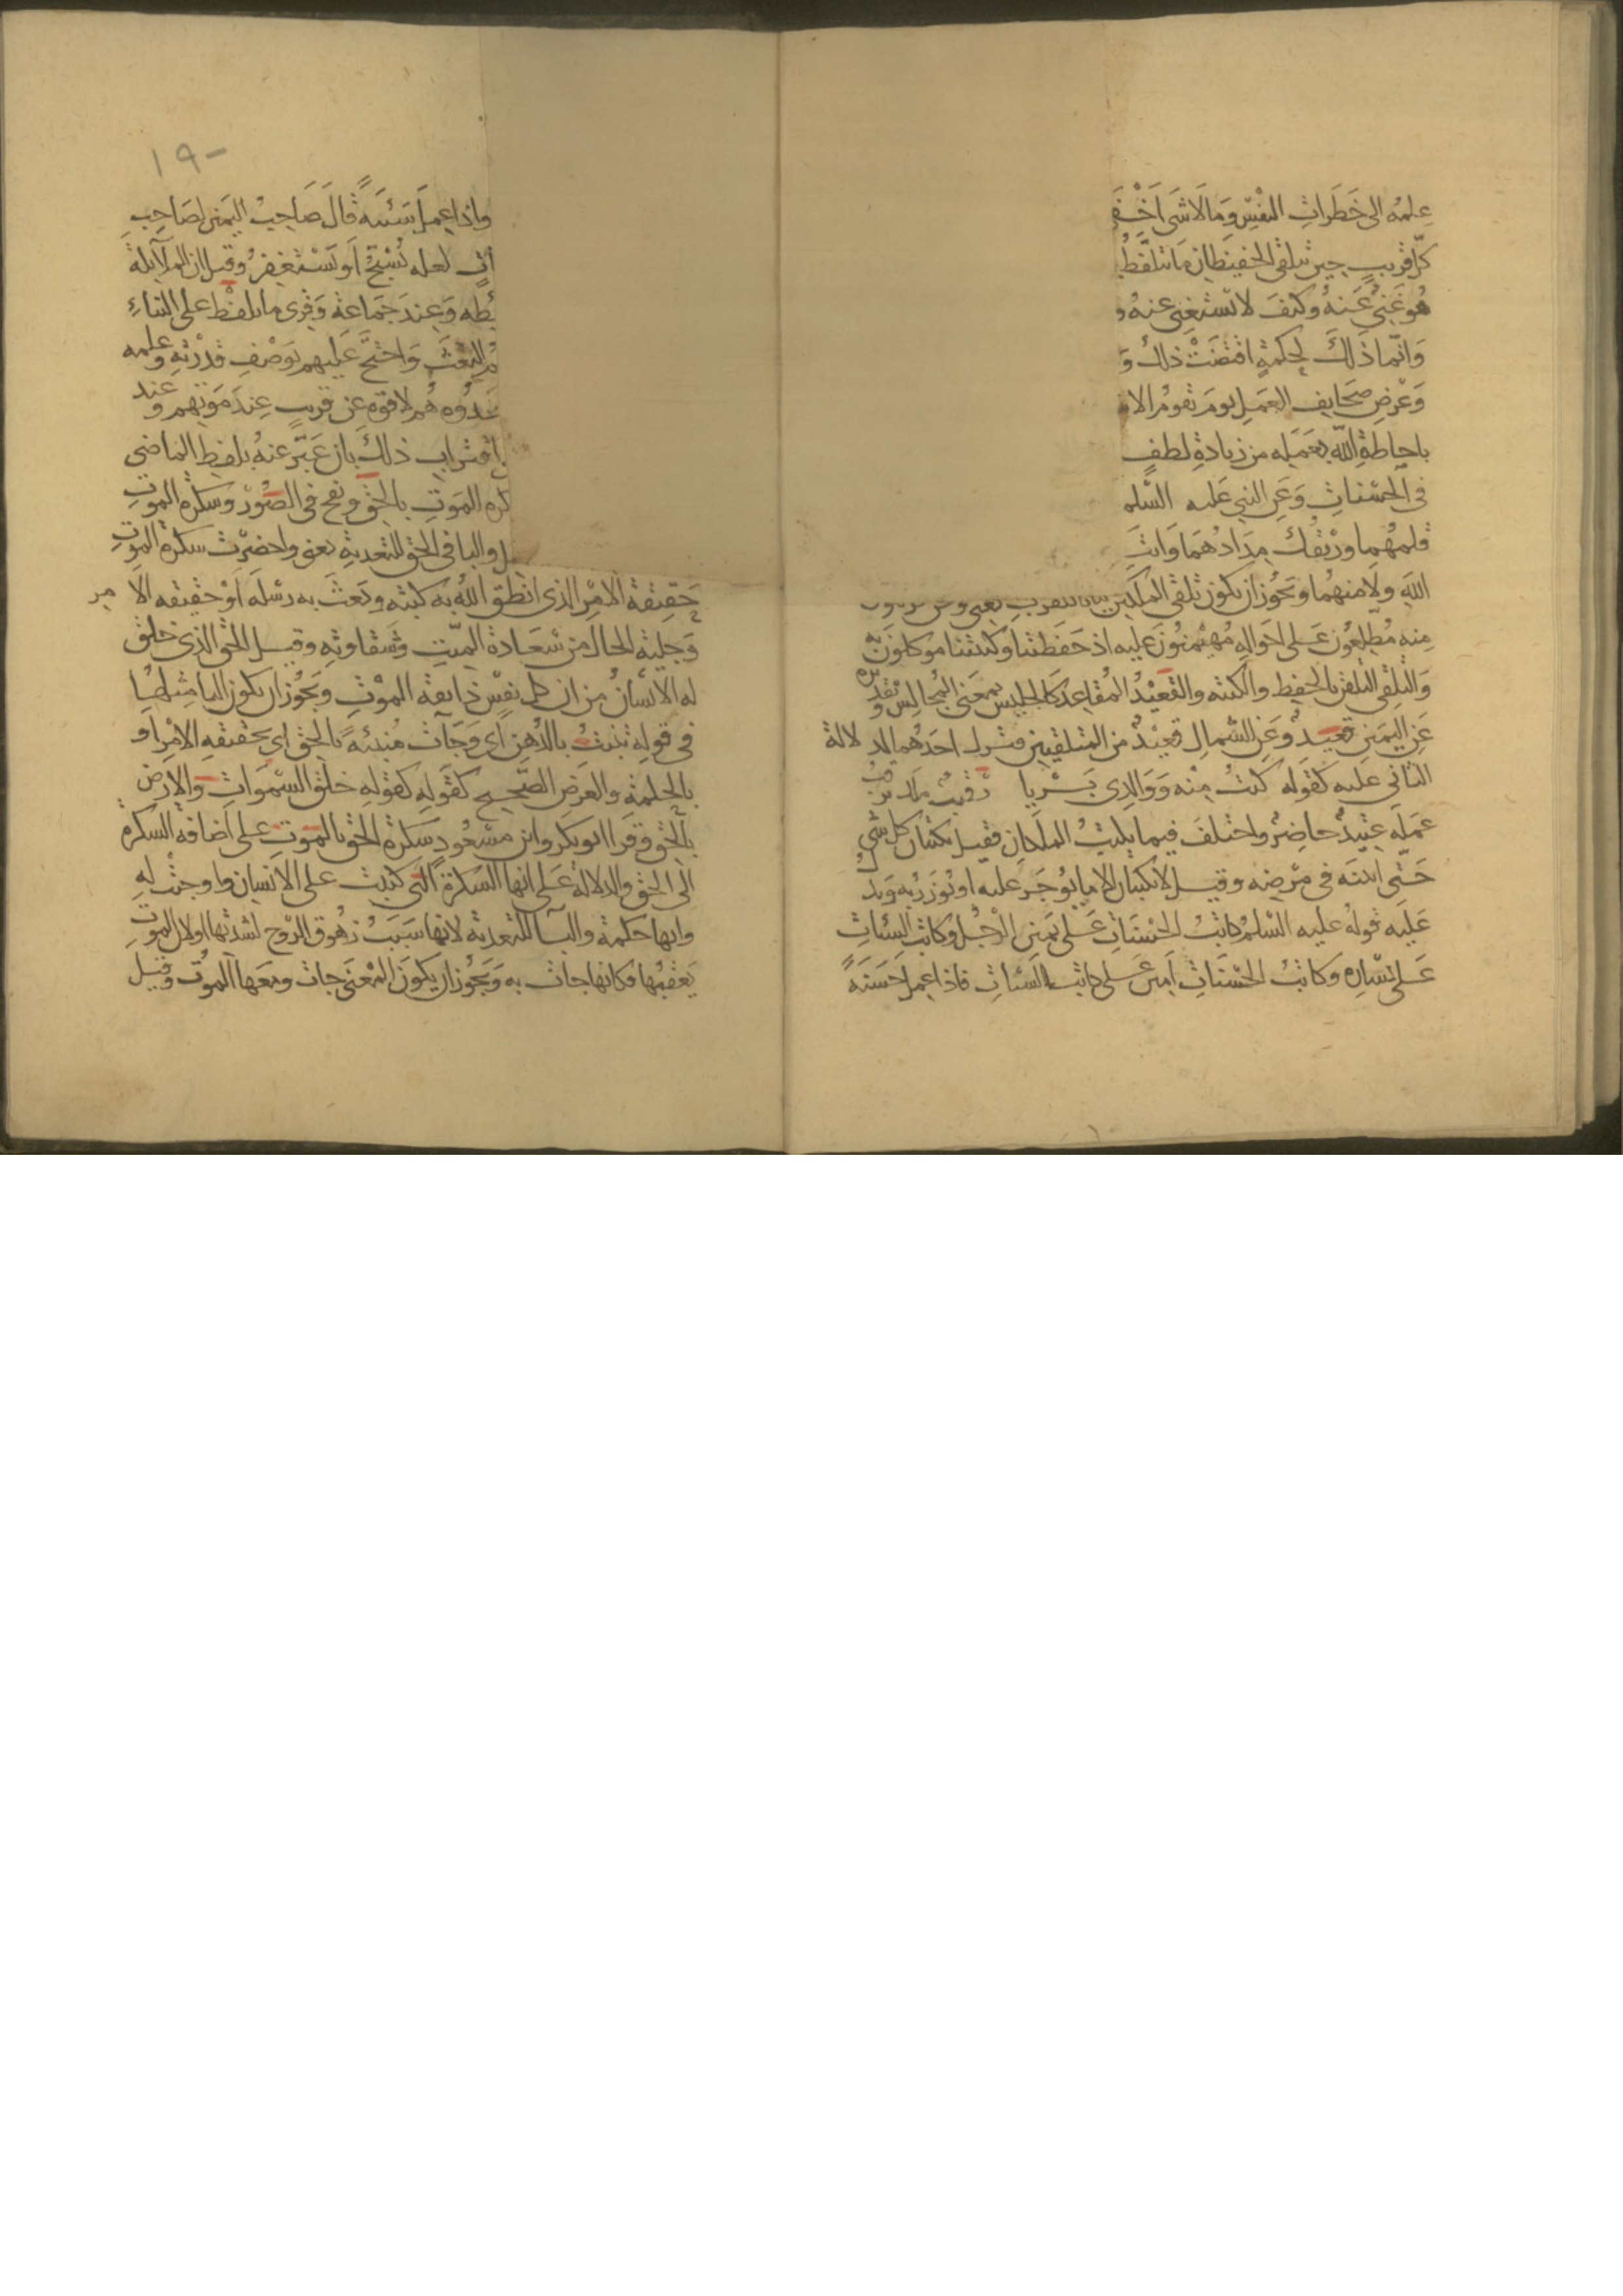 علمه الى خطرات النفس وما لا شى اخفى
كل قريب حين يتلقى الحفيظان ما يتلفظ
هو غنى عنه وكيف لا يستغنى عنه و
وانما ذلك لحكمة اقتضت ذلك و
وعرض صحايف العمل يوم تقوم الا
باحاطة الله بعمله من زيادة لطف
فى الحسنات وعن النبى عليه السلم
قلمهما وريقك مدادهما وانت
الله ولا منهما ويجوز ان يكون تلقى الملكين بيانا للقرب يعنى ونحن
منه مطلعون على احواله مهيمنون عليه اذ حفظتنا وكتبتنا موكلون
والتلقى التلقن بالحفظ والكتبه والقعيد المقاعد كالجليس بمعنى المجالس وتقديره
عن اليمين قعيد وعن الشمال قعيد من المتلقيين فترك احدهما لدلالة
الثانى عليه كقوله كنت منه ووالدى بريا رقيب ملك يرقب
عمله عتيد حاضر واختلف فيما يكتب الملكان فقيل يكتبان كل شى
حتى انينه فى مرضه وقيل لا يكتبان الا ما يوجر عليه او يوزر به ويدل
عليه قوله عليه السلم كاتب الحسنات على يمين الرجل وكاتب السيات
على يساره وكاتب الحسنات امين على كاتب السيات فاذا عمل حسنة
١٩
واذا عمل سيئة قال صاحب اليمين لصاحب
ات لعله يسبح او يستغفر وقيل ان الملايكة
ئطه وعند جماعة وقرى ما يلفظ على البناء
هم البعث واحتج عليهم بوصف قدرته وعلمه
حدوه هم لاقوه عن قريب عند موتهم وعند
اقتراب ذلك بان عبر عنه بلفظ الماضى
كرة الموت بالحق ونفخ فى الصور وسكرة الموت
ل والبا فى الحق للتعدية يعنى واحضرت سكرة الموت
حقيقة الامر الذى انطق الله به كتبه وبعث به رسله او حقيقه الامر
وجلية الحال من سعادة الميت وشقاوته وقيل الحق الذى خلق
له الانسان من ان كل نفس ذايقة الموت ويجوز ان يكون البا مثلها
فى قوله تنبت بالدهن اى وجآت منبئة بالحق اى بحقيقه الامر او
بالحكمة والعرض الصحيح كقوله كقوله خلق السموات والارض
بالحق وقرا ابو بكر وابن مسعود سكرة الحق بالموت على اضافه السكرة
الى الحق والدلالة على انها السكرة التى كتبت على الانسان واوجبت له
وانها حكمة والبا للتعدية لانها سبب زهوق الروح لشدتها او لان الموت
يعقبها فكانها جات به ويجوز ان يكون المعنى جات ومعها الموت وقيل